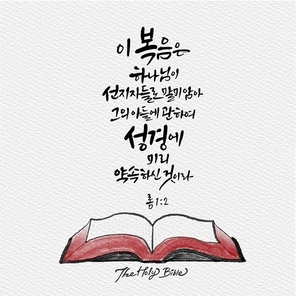 이 복음은
하나님이
선지자들로 말미암아
그의 아들에 관하여
성경에
미리
약속하신 것이라
롬 1:2
The Holy Bible